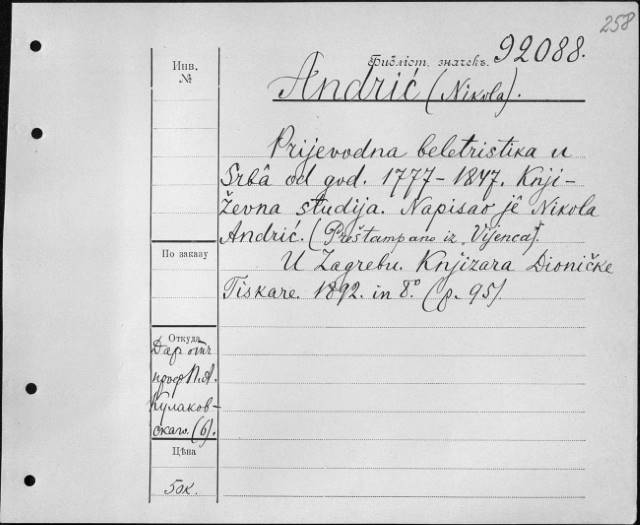 258
Библіот. значекъ. 92088.
Инв.
№
Andrić (Nikola).
Prijevodna beletristika u
Srbâ od god. 1777-1847. Knji-
ževna studija. Napisao jê Nikola
Andrić. (Preštampano iz Vijenca).
По заказу
U Zagrebu. Knjizara Dioničke
Tiskare. 1892. in 8° (p. 95).
Откуда
Даръ отъ
проф. П. А.
Кулаков-
скаго. (6).
Цѣна
50к.